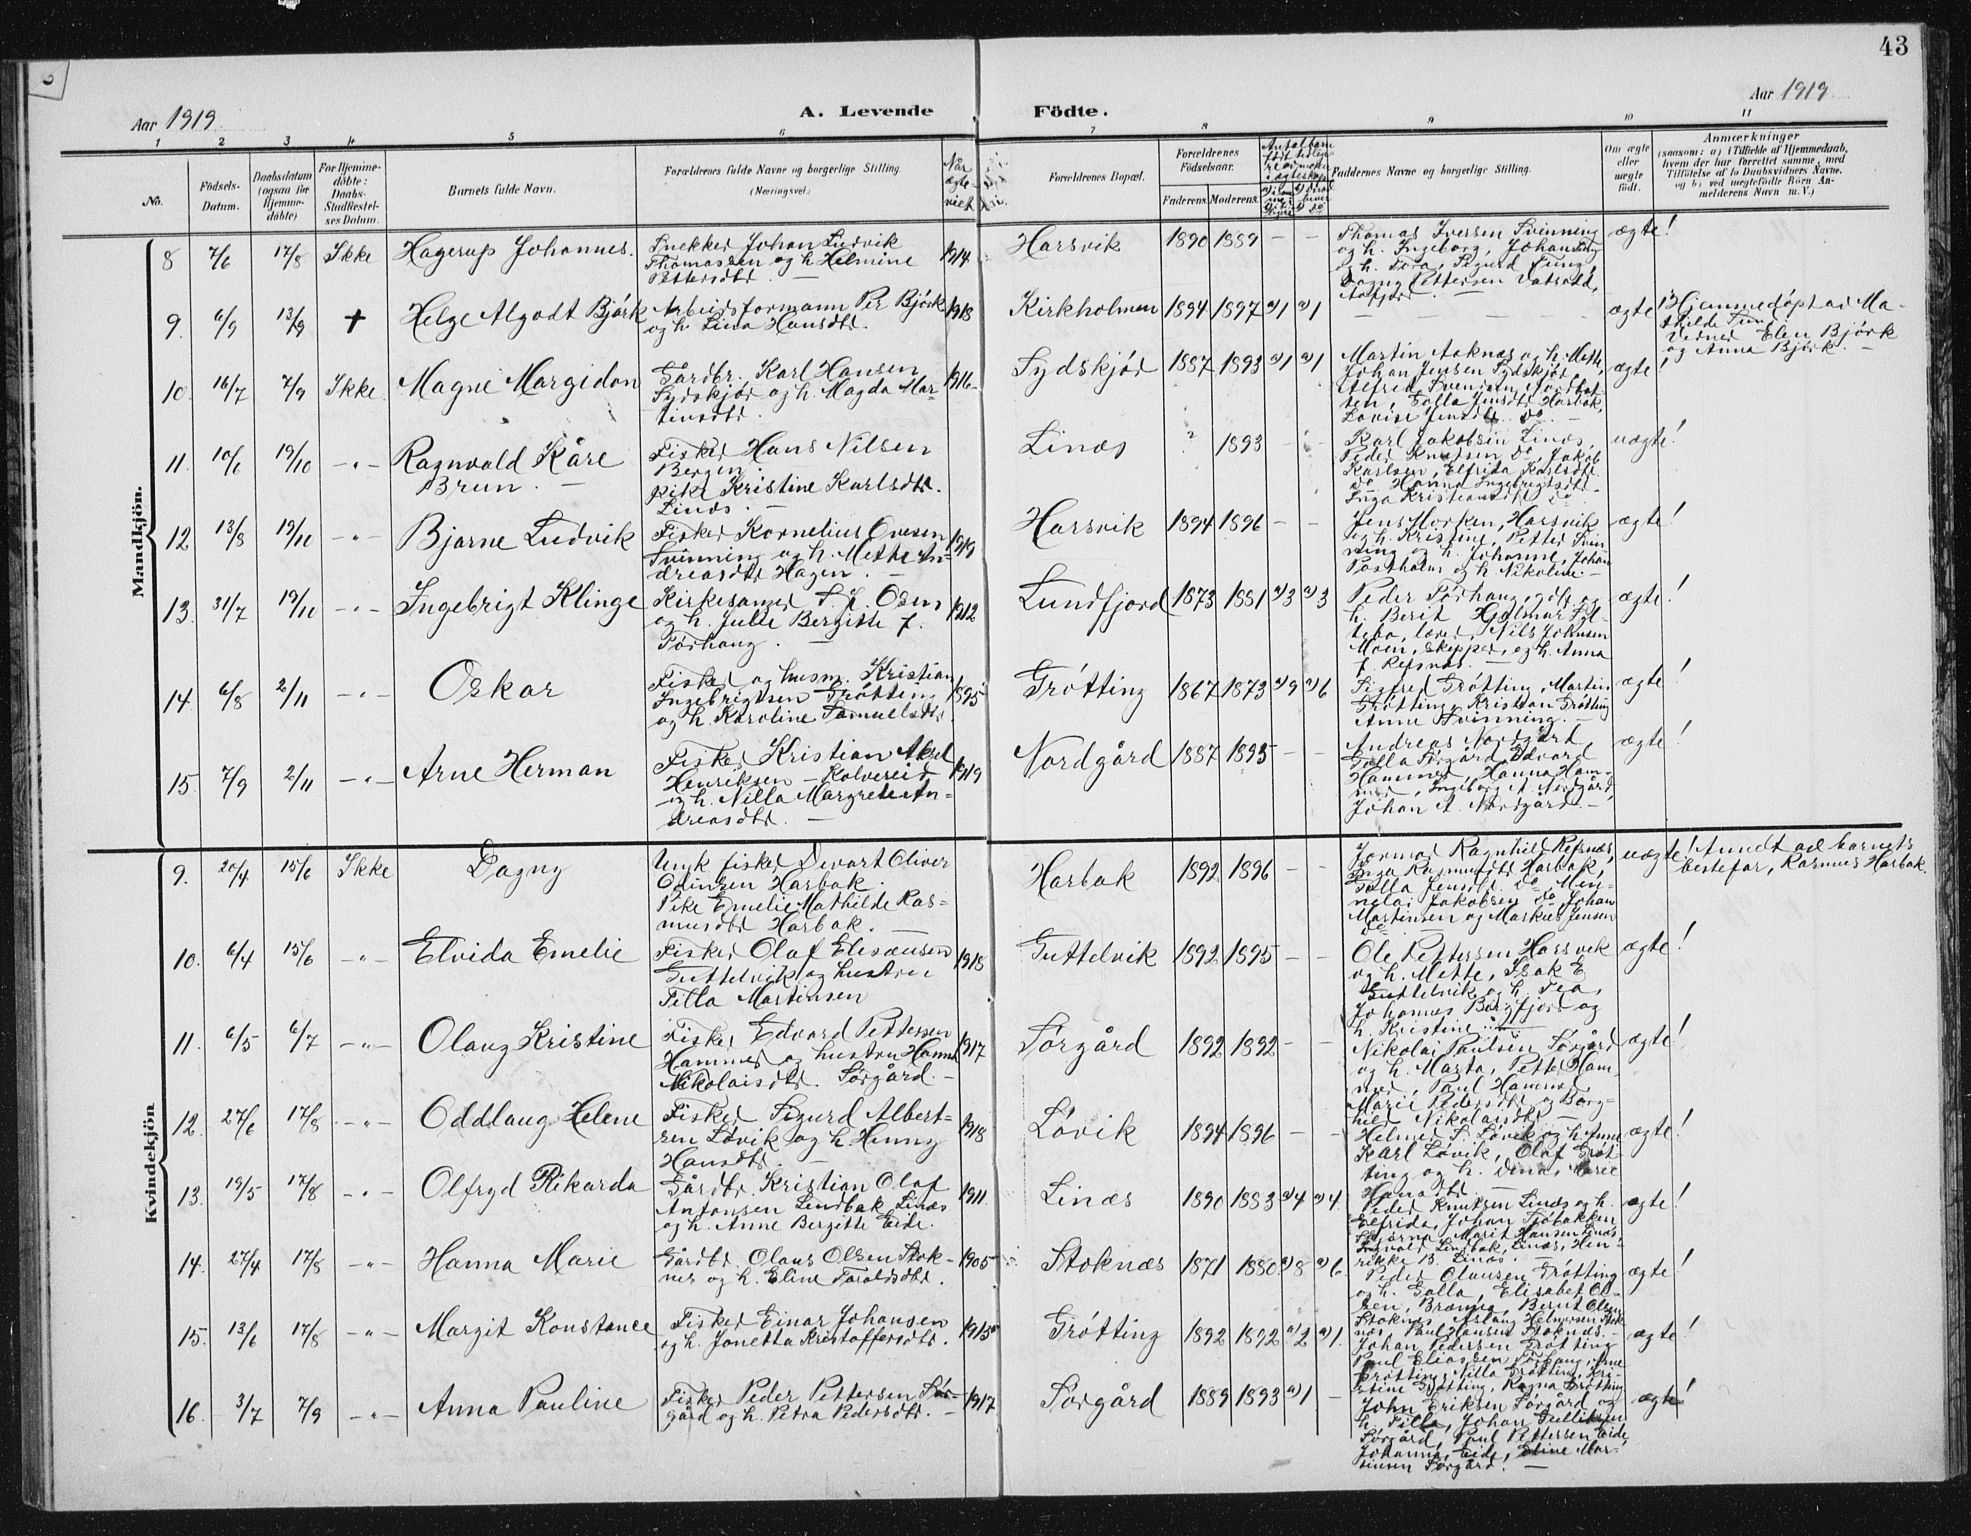 43
Aar 1919
A. Levende
Födte.
Aar 1919
1 2 3 4 5 6 7 8 9 10 11
No.
Födsels-
Datum.
Daabsdatum
(ogsaa for
Hjemme-
döbte)
For Hjemme-
döbte:
Daabs-
Stadfæstel-
ses Datum.
Barnets fulde Navn.
Forældrenes fulde Navne og borgerlige Stilling
(Næringsvei.)
Når
ægte-
viet
Forældrenes Bopæl.
Forældrenes
Födselsaar.
Faderens. Moderens.
Faddernes Navne og borgerlige Stilling.
Om ægte
eller
uægte
födt.
Anmærkninger
(saasom: a) i Tilfælde af Hjemmedaab,
hvem der har forrettet samme, med
Tilföielse af to Daabsvidners Navne.
og b) ved uegtefödte Börn An-
melderens Navn m. V.)
Mandkjön.
8 7/6 17/8 Ikke Hagerup Johannes.
Snekker Johan Ludvik
Thomassen og h. Helmine
Pettersdtr. —
1914
Harsvik 1890 1889 — —
Thomas Iversen Svinning
og h. Ingeborg, Johan
og h. Tora, Sigurd
ægte!
9. 6/9 13/9 + Helge Algodt Björk
Arbeidsformann Per Björk
og h. Lina Hansdtr.
1918
Kirkholmen 1894 1897 a)1 a)1
— — — —
ægte
Hjemmedöpt av Ma-
thilde
Vidner Elen Björk
og Anna Björk. —
10. 16/7 7/9 Ikke Magne Margidon
Gårdbr. Karl Hansen
Sydskjör og h. Magda Mar-
tinsdtr.
1916
Sydskjör 1887 1893 a)1 a)1
Martin Aoknæs og h. Mette,
Johan Jensen Sydskjör,
Alfred Svendsen
Jensdtr. Harbak,
Lovise Jensdtr. do —
ægte!
11. 10/6 19/10 — " — Ragnvald Kåre
Brun. —
Fisker Hans Nilsen
Bergen.
pike Kristine Karlsdtr.
Linæs. —
Linæs ? 1893 — —
Karl Jakobsen Linæs,
Peder Knutsen do, Jakob
Karlsen, Elfrida Karlsdtr
do Hanna Ingebrigtsdtr.
Inga Kristiansdtr do
uægte!
12 13/8 19/10 — " — Bjarne Ludvik
Fisker Kornelius Ovesen
Svinning og h. Mette An-
dreasdtr Hagen. —
1919
Harsvik 1894 1896 — —
Jens Morken, Harsvik
og h. Kristine, Petter Svin-
ning og h. Johanne, Johan
og h. Nikoline —
ægte!
13. 31/7 19/10 — " — Ingebrigt Klinge
Kirkesanger
og h. Julie Bergitte f.
Torhaug. —
1912
Lundfjord 1873 1881 a)3 a)3
Peder Torhaug,
h. Berit
Nils Johnsen
Moen, skipper, og h. Anna
f. Refsnæs. —
ægte!
14. 6/8 2/11 — " — Oskar
Fisker og husm. Kristian
Ingebrigtsen Gröttin,
og h. Karoline Samuelsdtr.
1895
Grötting 1867 1873 a)9 a)6
Sigfred Grötting, Martin
Grötting, Kristian Grötting
Anne Svinning. —
ægte!
15. 7/9 2/11 — " — Arne Herman
Fisker Kristian Aksel
Henriksen — Kolvereid
og h. Nilla Margrete An-
dreasdtr. —
1919
Nordgård 1887 1895 — —
Andreas Nordgård,
Edvard
Hammer, Hanna Ham-
mer, Ingeborg A. Nordgård,
Johan A. Nordgård. —
ægte!
Kvindekjön
9. 20/4 15/6 Ikke Dagny
Ungk. fisker Oliver
Odinsen Harbak.
Pike Emelie Mathilde Ras-
musdtr Harbak. —
Harbak 1892 1896 — —
Jormor Ragnhild Refsnæs,
Inga Rasmusdtr Harbak,
Jensdtr. do,
Jakobsen do Johan
Martinsen og Markus Jensen
do —
uægte!
Anmdt av barnets
bestefar, Rasmus Harbak.
10. 6/4 15/6 — " — Elvida Emelie
Fisker Olaf Eliseussen
Guttelvik og hustru
Tilla Martinsen
1918
Guttelvik 1892 1895 — —
Ole Pettersen Harsvik
og h. Mette, Isak E
Guttelvik og h. Tea,
Johannes Bergfjord og
h. Kristine. —
ægte!
11. 6/5 6/7 — " — Olaug Kristine
Fisker Edvard Pettersen
Hammer og hustru Hanna
Nikolaisdtr. Sörgård. —
1917
Sörgård 1892 1892 — —
Nikolai Paulsen Sörgård
og h. Marta, Petter Ham-
mer, Paul Hammer,
Marie Pedersdtr og Borg-
hild Nikolaisdtr —
ægte!
12. 27/6 17/8 — " — Oddlaug Helene
Fisker Sigurd Albert-
sen Lövik og h. Henny
Hansdtr. —
1918
Lövik 1894 1896 — —
Helmer S. Lövik og h. Anne
Karl Lövik, Olaf Gröt-
ting og h. Dina, Marie
Hansdtr —
ægte!
13. 19/5 17/8 — " — Olfryd Rikarda
Gårdbr. Kristian Olaf
Antonsen Lindbak, Linæs
og h. Anne Bergitte Eide.
1911
Linæs 1890 1883 a)4 a)4.
Peder Knutsen Linæs og h.
Elfrida, Johan Sjöbakken
Stjørna, Marit Hansen Linæs,
Ingvald Lindbak, Linæs, Hen-
rikke B. Linæs.
ægte!
14. 27/4 17/8 — " — Hanna Marie
Gårdbr. Olaus Olsen Stok-
nes og h. Eline Taraldsdtr.
1905
Stoknæs 1871 1880 a)8 a)6
Peder Olaussen Grötting
og h. Golla, Elisabet Ol-
sen, Brænna, Bernt Olsen
Stoknes, Aslaug Helmersen Stok
næs, Paul Hansen Stoknæs. —
ægte!
15. 13/6 17/8 — " — Margit Konstance
Fisker Einar Johansen
og h. Jonetta Kristoffersdtr.
1915
Grötting 1892 1892 a)2 a)1.
Johan Pedersen Grötting
Paul Eliassen, Torhaug, Arne
Grötting, Nilla Grötting, Kri-
stine Grötting, Ragna Grötting
ægte!
16. 3/7 7/9 — " — Anna Pauline
Fisker Peder Pettersen Sör-
gård og h. Petra Pedersdtr. —
1917
Sörgård 1889 1893 a)1 —
John Eriksen Sörgård og
h. Tilla, Johan Gulliksen
Sörgård, Paul Pettersen Eide
Johanna Eide, Eline Mar-
tinsen Sörgård. —
ægte!